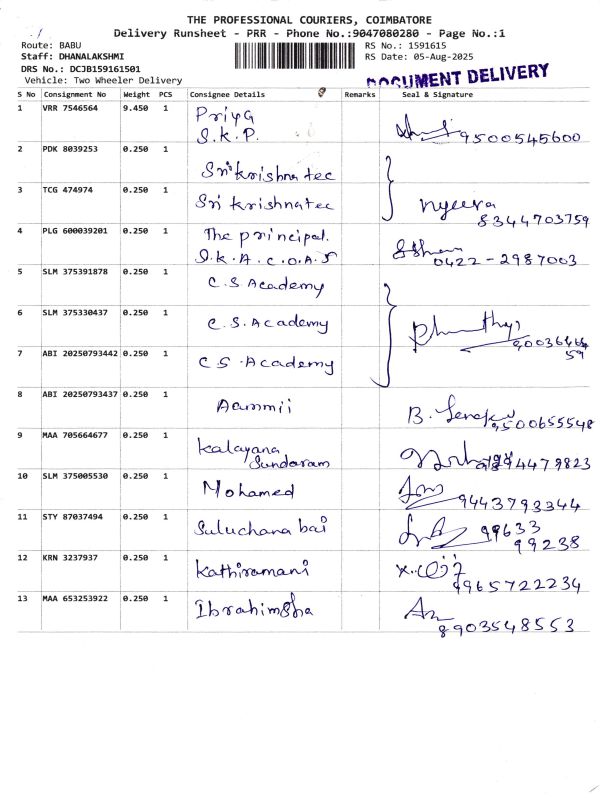 THE PROFESSIONAL COURIERS, COIMBATORE
Delivery Runsheet - PRR - Phone No.:9047080280 - Page No.:1
Route: BABU
RS No.: 1591615
Staff: DHANALAKSHMI
RS Date: 05-Aug-2025
DRS No.: DCJB159161501
Vehicle: Two Wheeler Delivery
DOCUMENT DELIVERY
S No Consignment No Weight PCS Consignee Details Remarks Seal & Signature
1 VRR 7546564 9.450 1 Priya
S.K.P. 9500545600
2 PDK 8039253 0.250 1 Sri krishna tec
3 TCG 474974 0.250 1 Sri krishna tec
8344703759
4 PLG 600039201 0.250 1 The principal.
S.K.A.C.O.A.S 0422-2987003
5 SLM 375391878 0.250 1 C.S. Academy
6 SLM 375330437 0.250 1 C.S. Academy
7 ABI 20250793442 0.250 1 CS. Academy
8 ABI 20250793437 0.250 1 9500655548
9 MAA 705664677 0.250 1 Kalayana
Sundaram
10 SLM 375005530 0.250 1 Mohamed 9443793344
11 STY 87037494 0.250 1 Suluchana bai 99633
99238
12 KRN 3237937 0.250 1 Kathiramani
9965722234
13 MAA 653253922 0.250 1 Ibrahimsha
8903548553